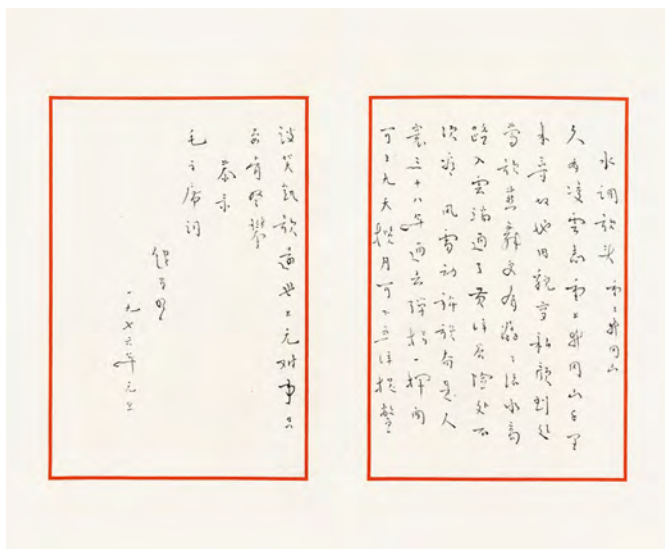 水調歌头 重上井岡山
久有凌雲志重上井岡山千里
来尋故地旧貌变新颜到处
莺歌燕舞更有潺〻流水高
路入雲端過了黄洋界险处不
须看 風雷动旌旗奋是人
寰三十八年过去弹指一挥间
可上九天揽月可下五洋捉鳖
谈笑凯歌還世上无难事只
要肯登攀
恭录
毛主席词
一九七六年元旦